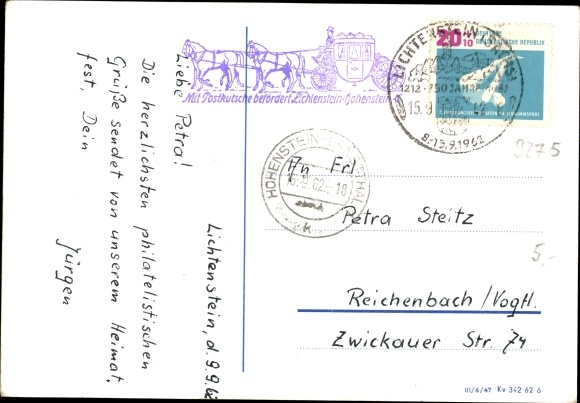 Lichtenstein, d. 9.9.62
Liebe Petra!
Die herzlichsten philatelistischen
Grüße sendet von unserem Heimat,
fest, Dein
Jürgen
Mit Postkutsche befördert Lichtenstein-Hohenstein
LICHTENSTEIN
1212 · 750 JAHRE
15.9.
8.-15.9.1962
20
+10
DEUTSCHE
DEMOKRATISCHE REPUBLIK
HOHENSTEIN-ERNSTTHAL
15.9.62-18
k
9275
5,-
An Frl.
Petra Steitz
Reichenbach/Vogtl.
Zwickauer Str. 74
III/6/47 Kv 342 62 6